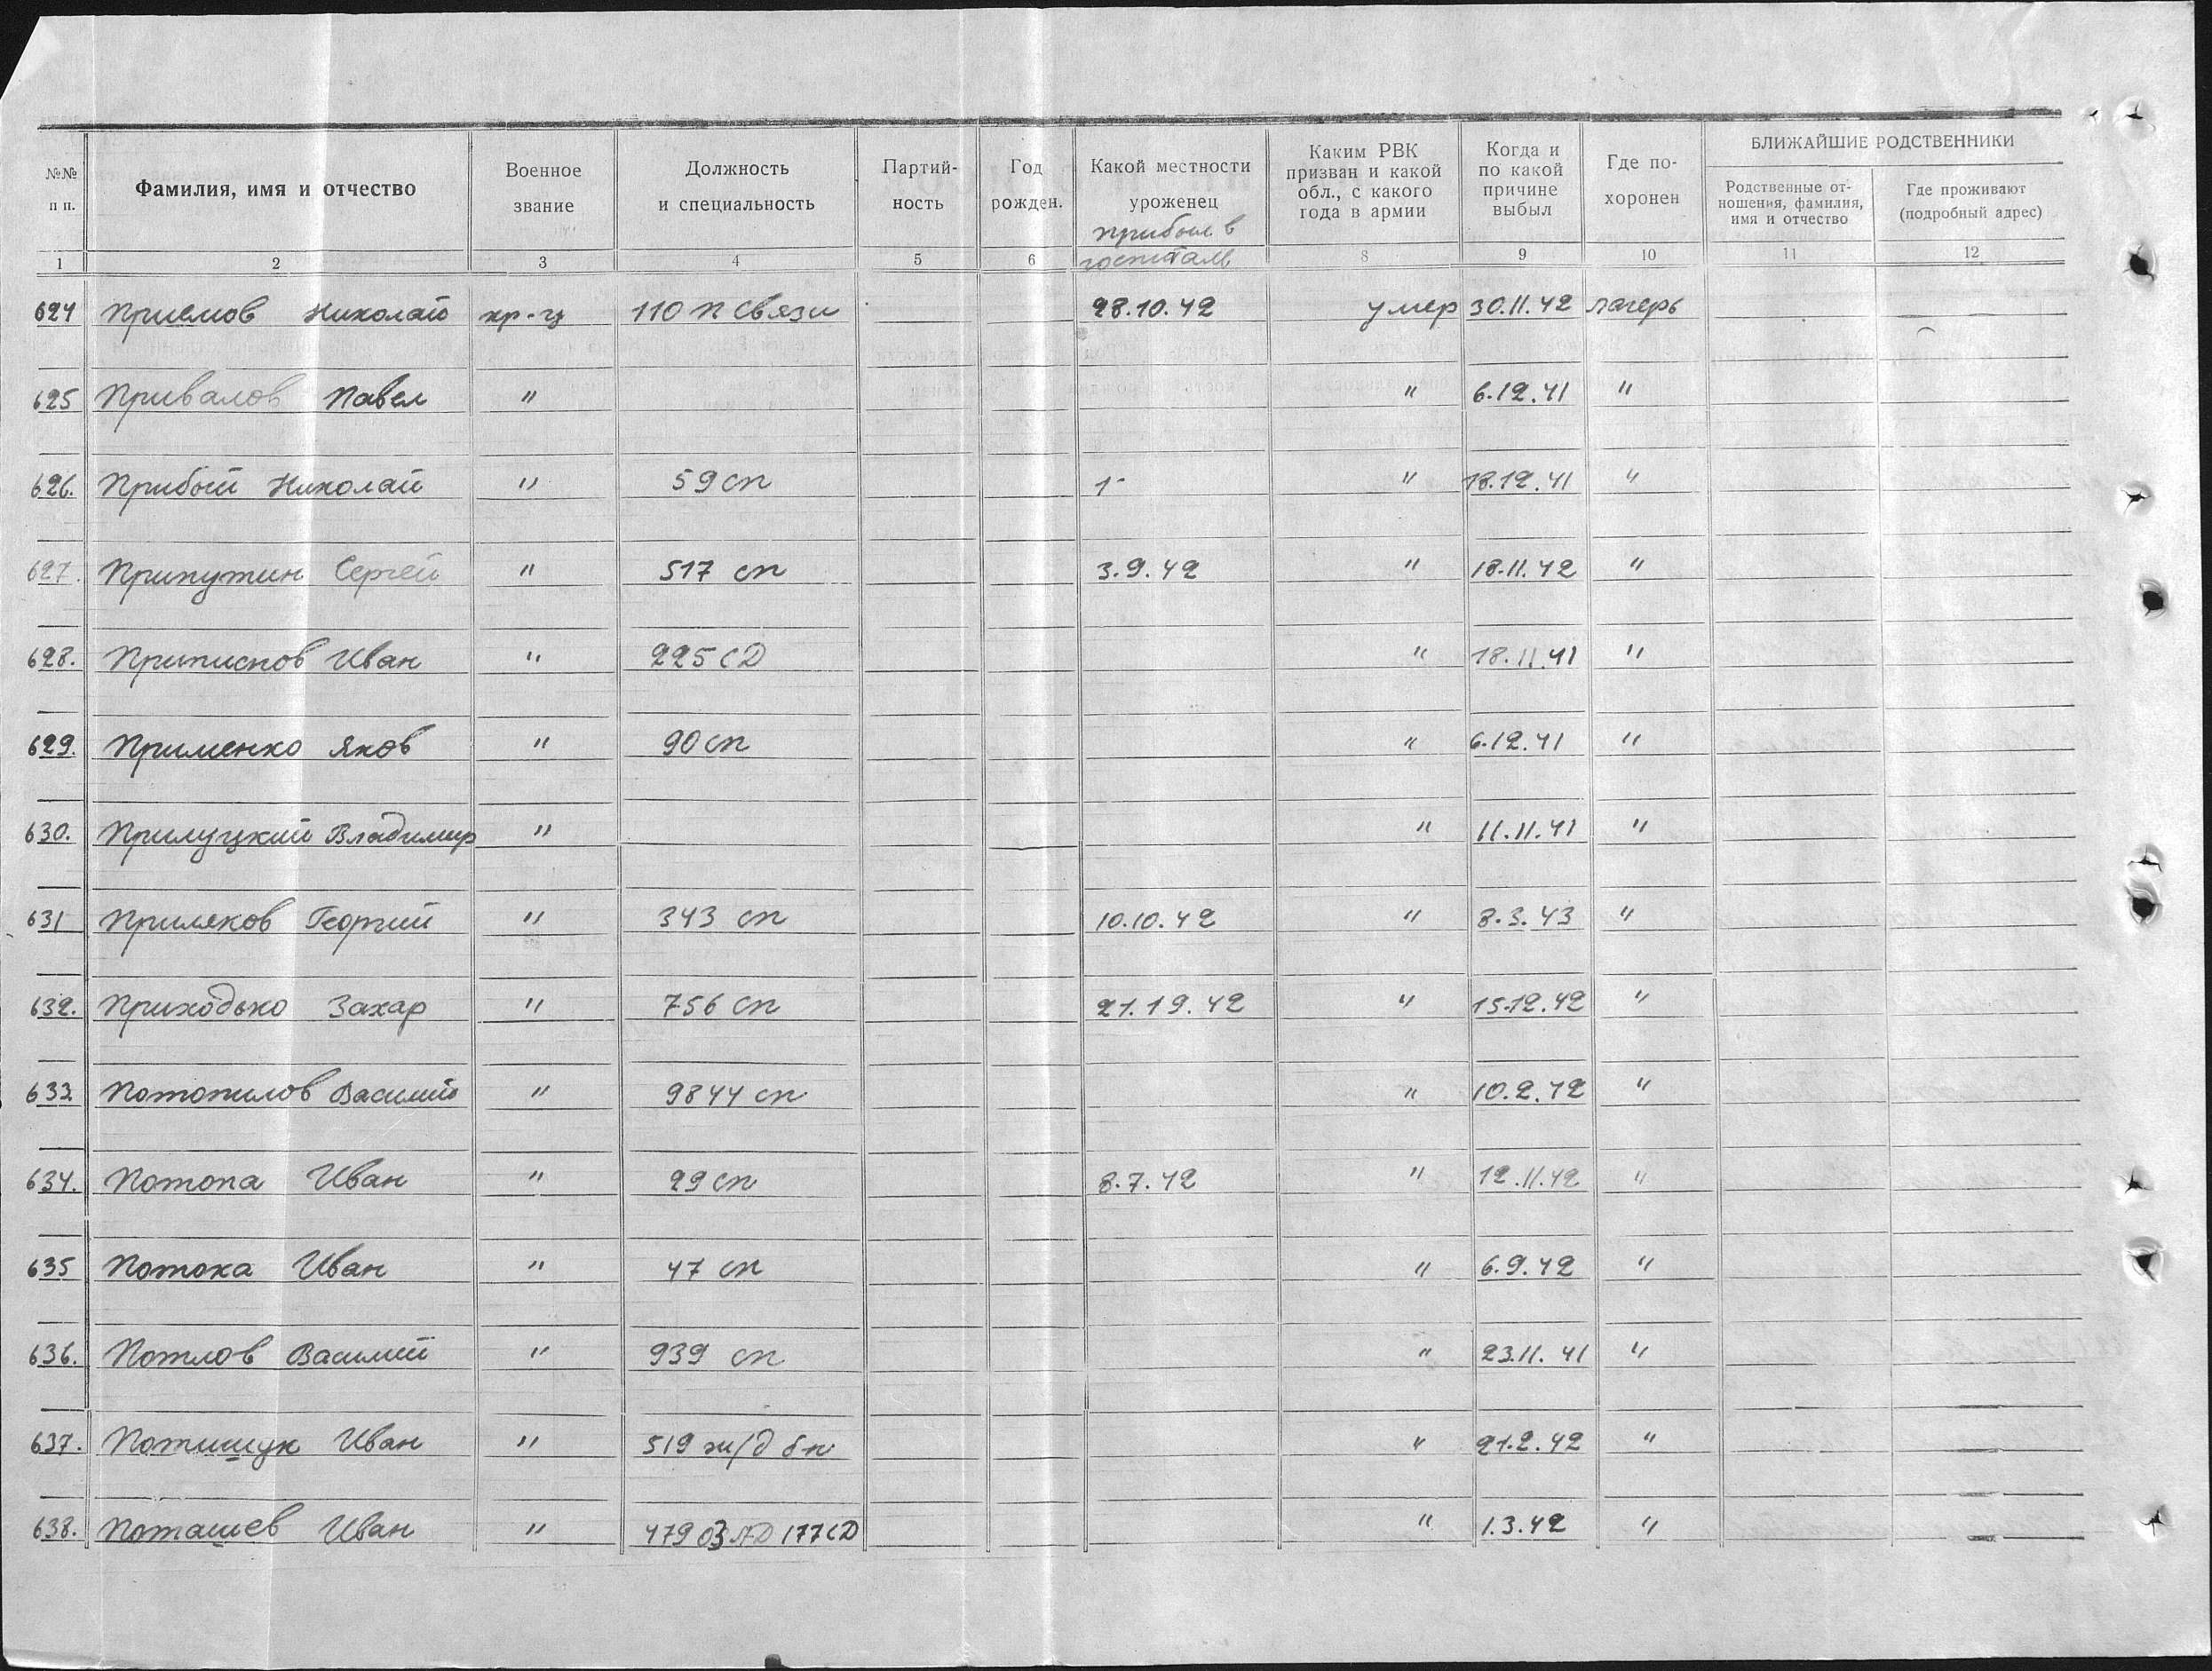 №№ п п. | Фамилия, имя и отчество | Военное звание | Должность и специальность | Партий- ность | Год рожден. | Какой местности уроженец прибыл в госпиталь | Каким РВК призван и какой обл., с какого года в армии | Когда и по какой причине выбыл | Где по- хоронен | БЛИЖАЙШИЕ РОДСТВЕННИКИ | Родственные от- ношения, фамилия, имя и отчество | Где проживают (подробный адрес)
1 2 3 4 5 6 8 9 10 11 12
624 Приемов Николай кр-ц 110 п связи 28.10.42 умер 30.11.42 лагерь
625 Привалов Павел " " 6.12.41 "
626. Прибой Николай " 59 сп 1- " 18.12.41 "
627. Припутин Сергей " 517 сп 3.9.42 " 18.11.42 "
628. Приписнов Иван " 225 СД " 18.11.41 "
629. Применко Яков " 90 сп " 6.12.41 "
630. Прилуцкий Владимир " " 11.11.41 "
631 Приляков Георгий " 343 сп 10.10.42 " 8.3.43 "
632. Приходько Захар " 756 сп 21.19.42 " 15.12.42 "
633 Потопилов Василий " 9844 сп " 10.2.42 "
634. Потопа Иван " 29 сп 8.7.42 " 12.11.42 "
635 Потока Иван " 47 сп " 6.9.42 "
636. Потлов Василий " 939 сп " 23.11.41 "
637. Потишук Иван " 519 ж/д б-н " 21.2.42 "
638. Поташев Иван " 479 177 СД " 1.3.42 "